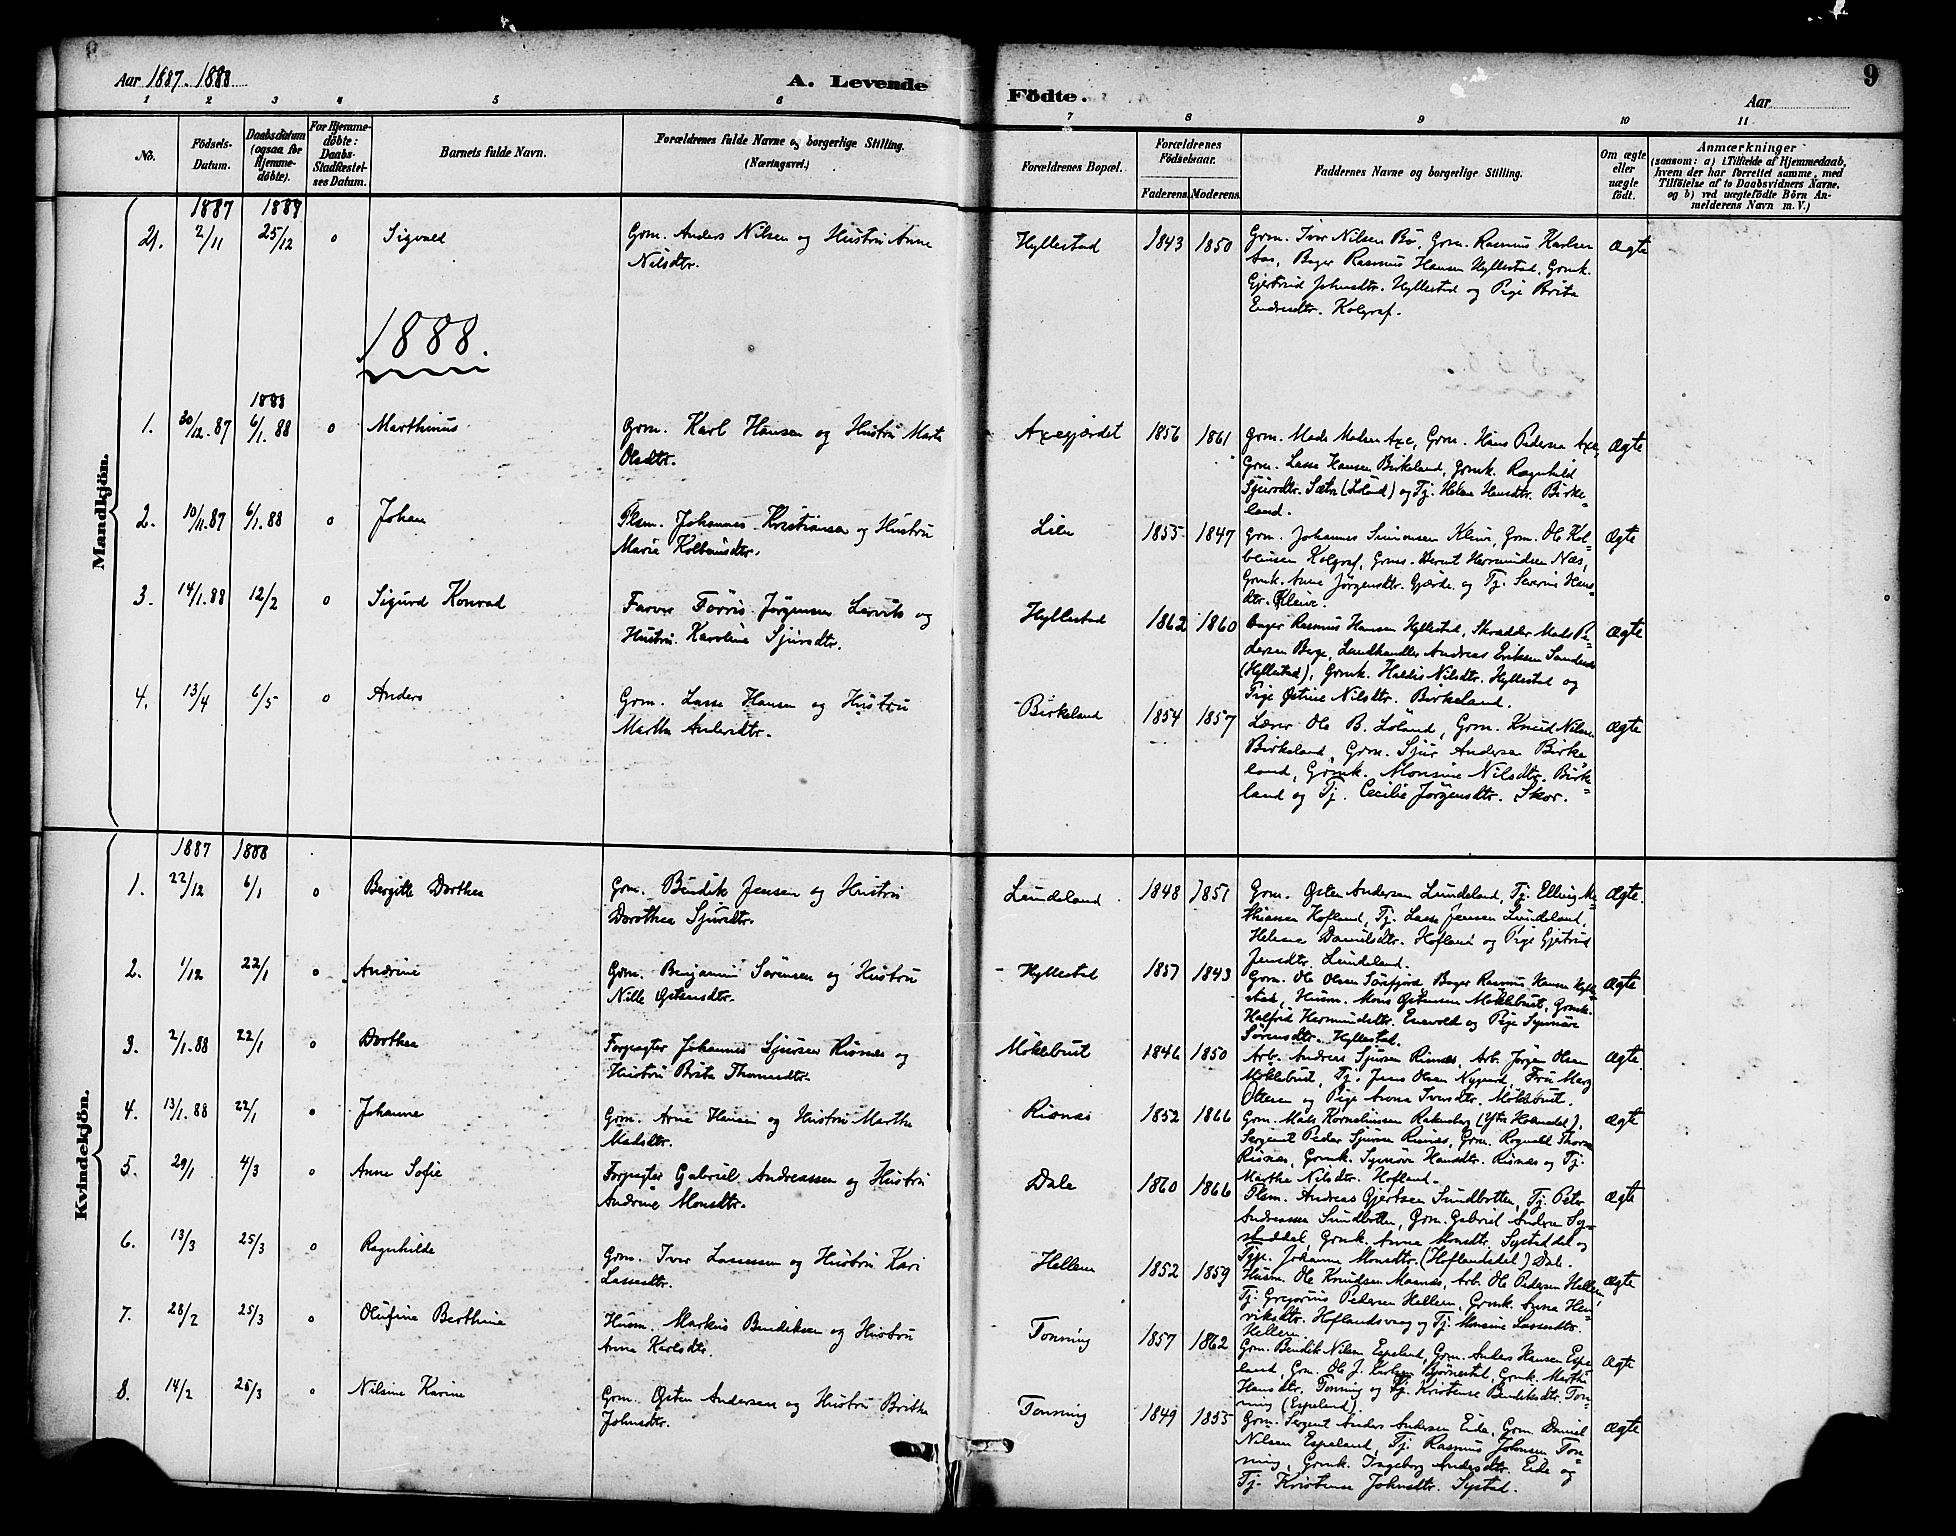 Aar 1887-1888
A. Levende
Födte.
9
Aar
1 2 3 4 5 6 7 8 9 10 11
No.
Födsels-
Datum.
Daabsdatum
(ogsaa for
Hjemme-
döbte).
For Hjemme-
döbte:
Daabs-
Stadfæstel-
ses Datum.
Barnets fulde Navn.
Forældrenes fulde Navne og borgerlige Stilling.
(Næringsvei.)
Forældrenes Bopæl.
Forældrenes
Födselsaar.
Faderens. Moderens.
Faddernes Navne og borgerlige Stilling.
Om ægte
eller
uægte
födt.
Anmærkninger
(saasom: a) i Tilfælde af Hjemmedaab,
hvem der har forrettet samme, med
Tilföielse af to Daabsvidners Navne,
og b) ved uægtefödte Börn An-
melderens Navn m. V.)
Mandkjön.
1887
21. 2/11 25/12 o Sigvald
Grm. Anders Nilsen og Hustru Anne
Nilsdtr.
Hyllestad 1843 1850
Grm. Ivar Nilsen Bö, Grm. Rasmus Karlsen
Aas, Bager Rasmus Hansen Hyllestad, Grmk.
Gjertrud Johnsdtr. Hyllestad og Pige Brita
Endresdtr. Kolgraf.
Ægte
1888.
1888
1. 30/12.87 6/1.88 o Marthinus
Grm. Karl Hansen og Hustru Marte
Olsdtr.
Axegjærdet 1856 1861
Grm. Mads Madsen Axe, Grm. Hans Pedersen Axe,
Grm. Lasse Hansen Birkeland, Grmk. Ragnhild
Sjursdtr. Sætre (Löland) og Tj. Helene Hansdtr. Birke=
land.
Ægte
2. 10/11.87 6/1.88 o Johan
Plsm. Johannes Kristiansen og Hustru
Maria Kolbeinsdtr.
Lien 1855 1847
Grm. Johannes Simonsen Kleive, Grm. Ole Kol=
beinsen Kolgraf, Grms. Bernt Hermundsen Næs,
Grmk. Anne Jörgensdtr. Gjærde og Tj. Severine Hans
dtr. Kleive.
Ægte
3. 14/1.88 12/2 o Sigurd Konrad
Farver Jörgensen Lervik og
Hustru Karoline Sjursdtr.
Hyllestad 1862 1860
Bager Rasmus Hansen Hyllestad, Skrædder Mads Pe=
dersen Berge, Landhandler Andreas Eriksen
(Hyllestad), Grmk. Haldis Nilsdtr. Hyllestad og
Pige Östine Nilsdtr. Birkeland.
Ægte
4. 13/4 6/5 o Anders
Grm. Lasse Hansen og Hustru
Martha Andersdtr.
Birkeland 1854 1857
Lærer Ole B. Löland, Grm. Knud Nilsen
Birkeland, Grm. Sjur Andersen Birke
land, Grmk. Monsine Nilsdtr. Birke=
land og Tj. Cecilie Jörgensdtr. Skor.
Ægte
Kvindekjön.
1887 1888
1. 22/12 6/1 o Bergitte Dorthea
Grm. Bendik Jensen og Hustru
Dorothea Sjursdtr.
Lundeland 1848 1851
Grm. Østen Andersen Lundeland, Tj. Elling
Hofland, Tj. Lasse Jensen Lundeland,
Helene Danielsdtr. Hofland og Pige Gjertrud
Jensdtr. Lundeland.
Ægte.
2. 1/12 22/1 o Andrine
Grm. Benjamin Sörensen og Hustru
Nille Østensdtr.
Hyllestad 1857 1843
Grm. Ole Olsen Sörefjord, Bager Rasmus Hansen Hylle=
stad, Husm. Mons Østensen Möklebust, Grmk.
Halfrid Hermundsdtr. Enevold og Pige Synnöve
Sörensdtr. Hyllestad.
Ægte
3. 2/1.88 22/1 o Dorthea
Forpagter Johannes Sjursen Risnes og
Hustru Brita Thomasdtr.
Möklebust 1846 1850
Arb. Andreas Sjursen Risnes, Arb. Jörgen Olsen
Möklebust, Tj. Jens Olsen Nygaard, Fru Mary
Ottesen og Pige Anna Ivarsdtr. Möklebust.
Ægte.
4. 13/1.88 22/1 o Johanne
Grm. Arne Hansen og Hustru Martha
Madsdtr.
Risnes 1852 1866
Grm. Mads Korneliussen Rakneberg (Ytre Holmedal),
Sergent Peder Sjursen Risnes, Grm. Rognald
Risnes, Grmk. Synnöve Hansdtr. Risnes og Tj.
Martha Nilsdtr. Hofland.
Ægte
5. 29/1 4/3 o Anne Sofie
Forpagter Gabriel Andreassen og Hustru
Andrine Monsdtr.
Dale 1860 1866
Plsm. Andreas Gjertsen Sundbotten, Tj. Peter
Andreassen Sundbotten, Grm. Gabriel
Grmk. Anna Monsdtr. Systaddal og
Pige Johanne Monsdtr. (Hoflandsdal) Dale.
Ægte
6. 13/3 25/3 o Ragnhilde
Grm. Ivar Lassesen og Hustru Kari
Lassesdtr.
Hellem 1852 1859
Husm. Ole Knudsen Masnes, Arb. Ole Pedersen Hellem,
Tj. Gregorius Pedersen Hellem, Grmk. Anna Hen=
riksdtr. Hoflandsvaag og Tj. Monsine Lassesdtr.
Hellem.
Ægte
7. 28/2 25/3 o Olufine Berthine
Husm. Markus Bendiksen og Hustru
Anna Karlsdtr.
Tonning 1857 1862
Grm. Bendik Nilsen Espeland, Grm. Anders Hansen Espe
land, Grm. Ole J. Bjørnestal, Grmk. Martha
Hansdtr. Tonning og Tj. Kristense Bendiksdtr. Ton=
ning (Espeland).
Ægte
8. 14/2 25/3 o Nilsine Karine
Grm. Østen Andersen og Hustru Brithe
Johnsdtr.
Tonning 1849 1855
Grm. Sergent Anders Andersen Eide, Grm. Daniel
Nilsen Espeland, Tj. Rasmus Johnsen Ton=
ning, Grmk. Ingeborg Andersdtr. Eide og
Tj. Kristense Johnsdtr. Systad.
Ægte